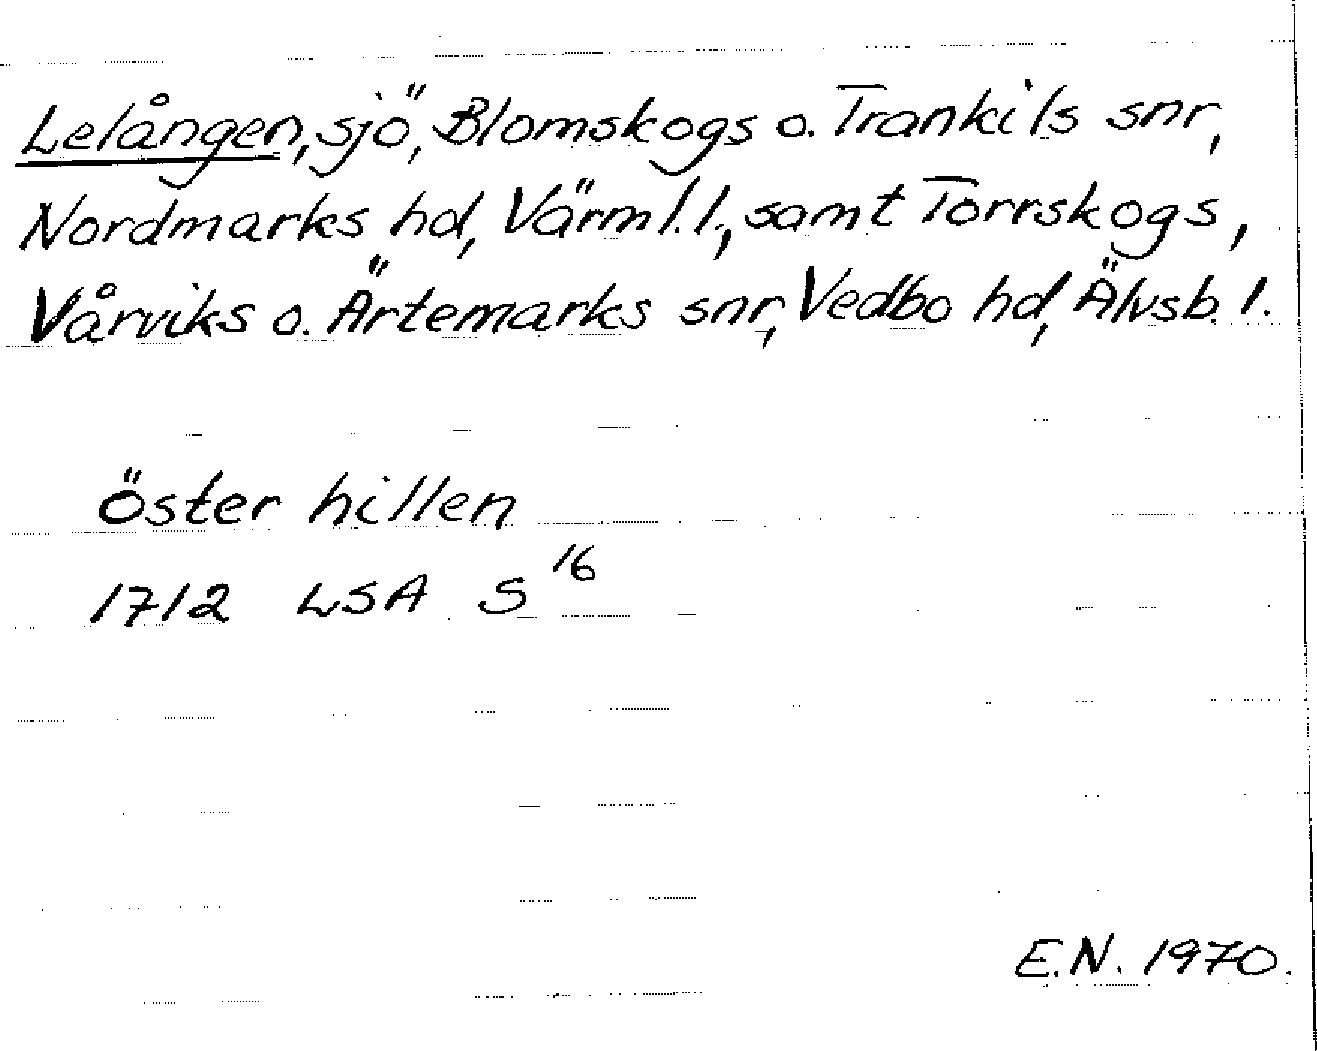 Lelången, sjö, Blomskogs o. Trankils snr,
Nordmarks hd, Värml. l., samt Torrskogs,
Vårviks o. Ärtemarks snr, Vedbo hd, Älvsb. l.
öster hillen
1712 LSA S 16
E.N. 1970.